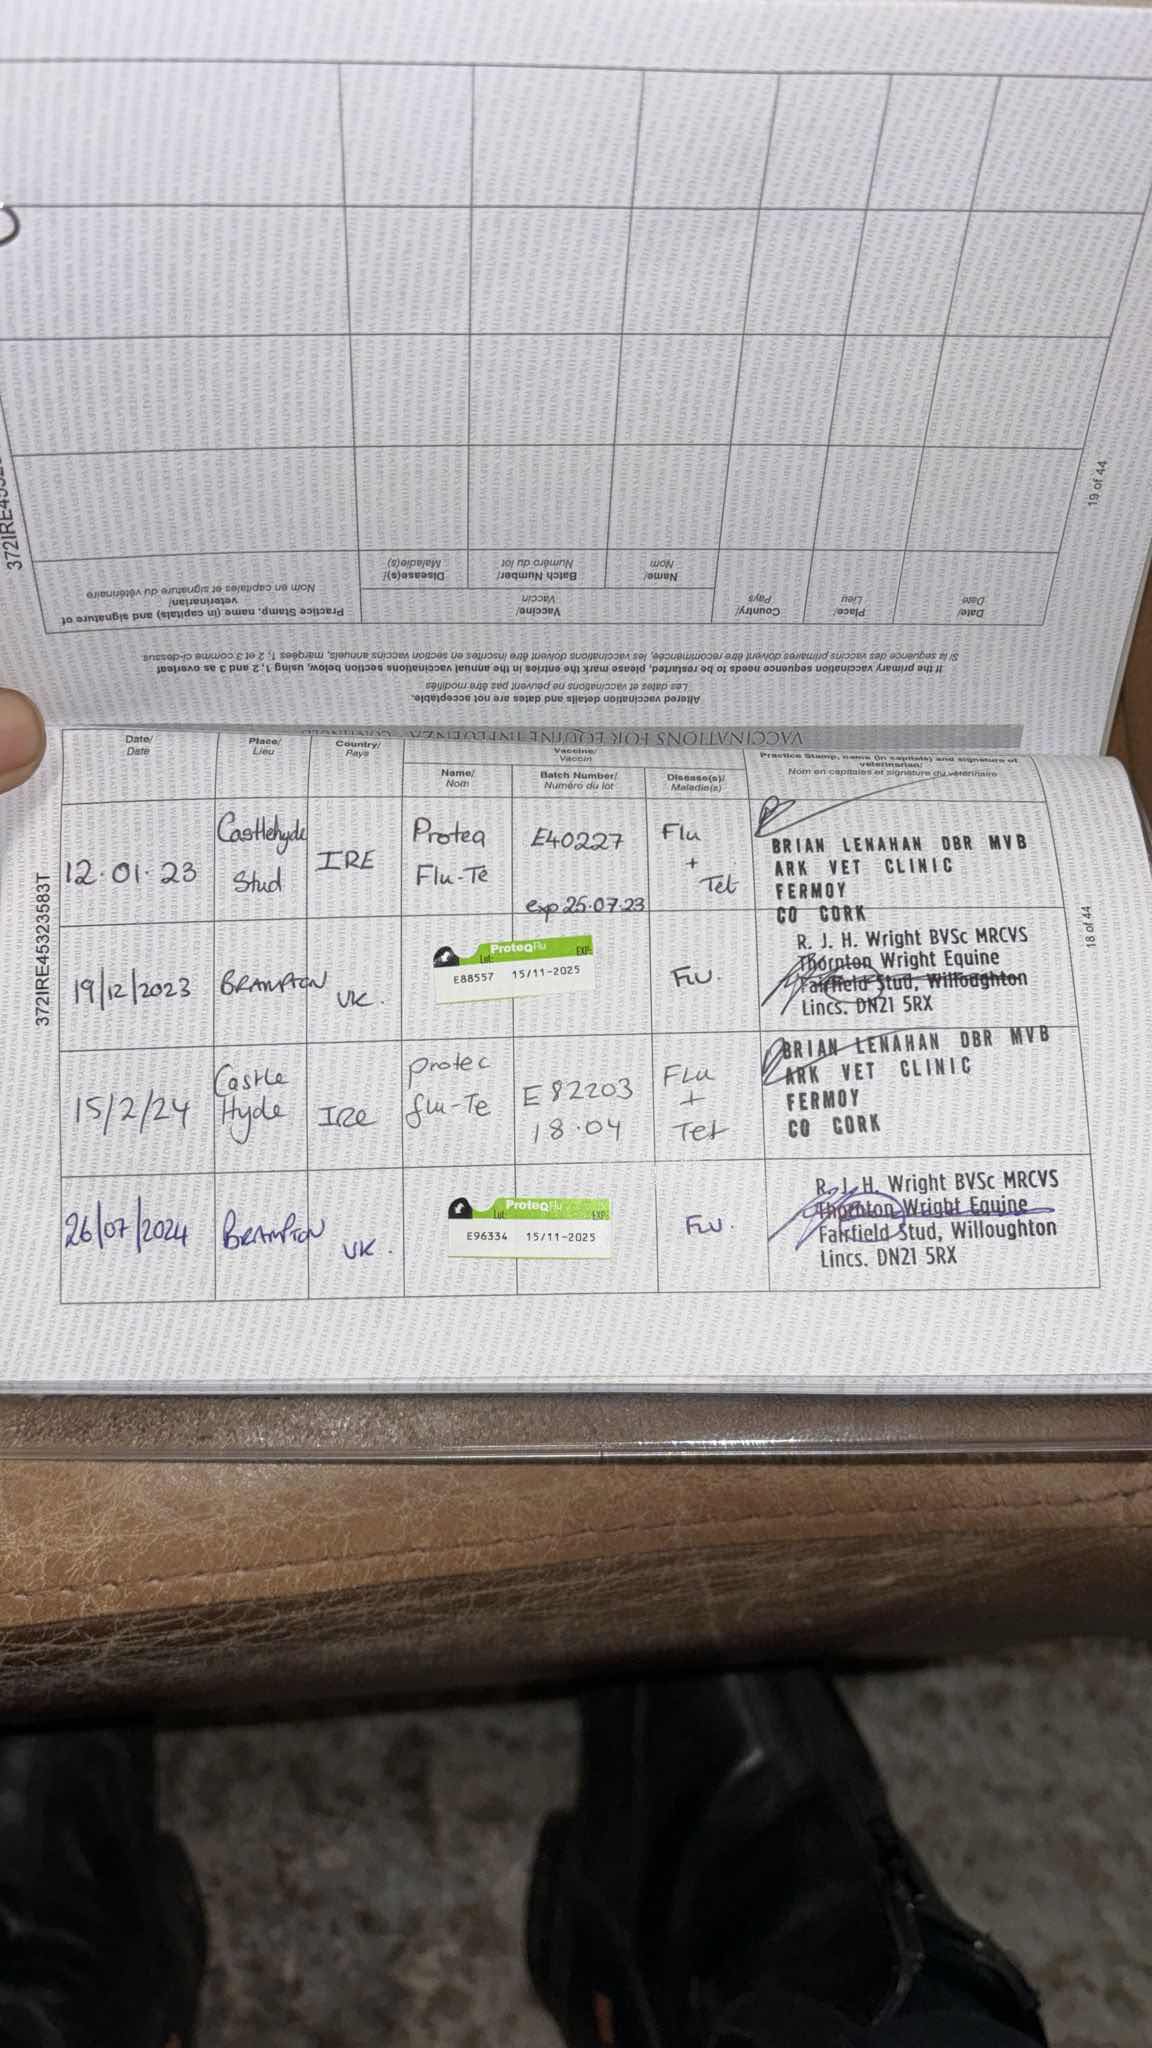 372IRE4532
19 of 44
Practice Stamp, name (in capitals) and signature of veterinarian/
Nom en capitales et signature du vétérinaire
Disease(s)/
Maladie(s)
Batch Number/
Numéro du lot
Name/
Nom
Vaccine/
Vaccin
Country/
Pays
Place/
Lieu
Date/
Date
If the primary vaccination sequence needs to be restarted, please mark the entries in the annual vaccinations section below, using 1, 2 and 3 as overleaf
Si la sequence des vaccins primaires doivent être recommencée, les vaccinations doivent être inscrites en section vaccins annuels, marquées 1, 2 et 3 comme ci-dessus
Altered vaccination details and dates are not acceptable.
Les dates et vaccinations ne peuvent pas être modifiés
VACCINATIONS FOR EQUINE INFLUENZA
Date/
Date
Place/
Lieu
Country/
Pays
Vaccine/
Vaccin
Name/
Nom
Batch Number/
Numéro du lot
Disease(s)/
Maladie(s)
Practice Stamp, name (in capitals) and signature of
veterinarian/
Nom en capitales et signature du vétérinaire
372IRE45323583T
18 of 44
12.01.23
Castlehyde
Stud
IRE
Proteq
Flu-Te
E40227
exp 25.07.23
Flu
+
Tet
BRIAN LENAHAN DBR MVB
ARK VET CLINIC
FERMOY
CO CORK
19/12/2023
BRAMPTON
UK.
ProteqFlu
Lot:
EXP:
E88557 15/11-2025
FLU.
R. J. H. Wright BVSc MRCVS
Thornton Wright Equine
Fairfield Stud, Willoughton
Lincs. DN21 5RX
15/2/24
Castle
Hyde
IRe
protec
flu-Te
E82203
18.04
FLu
+
Tet
BRIAN LENAHAN DBR MVB
ARK VET CLINIC
FERMOY
CO CORK
26/07/2024
BRAMPTON
UK.
ProteqFlu
Lot:
EXP:
E96334 15/11-2025
FLU.
R. J. H. Wright BVSc MRCVS
Thornton Wright Equine
Fairfield Stud, Willoughton
Lincs. DN21 5RX